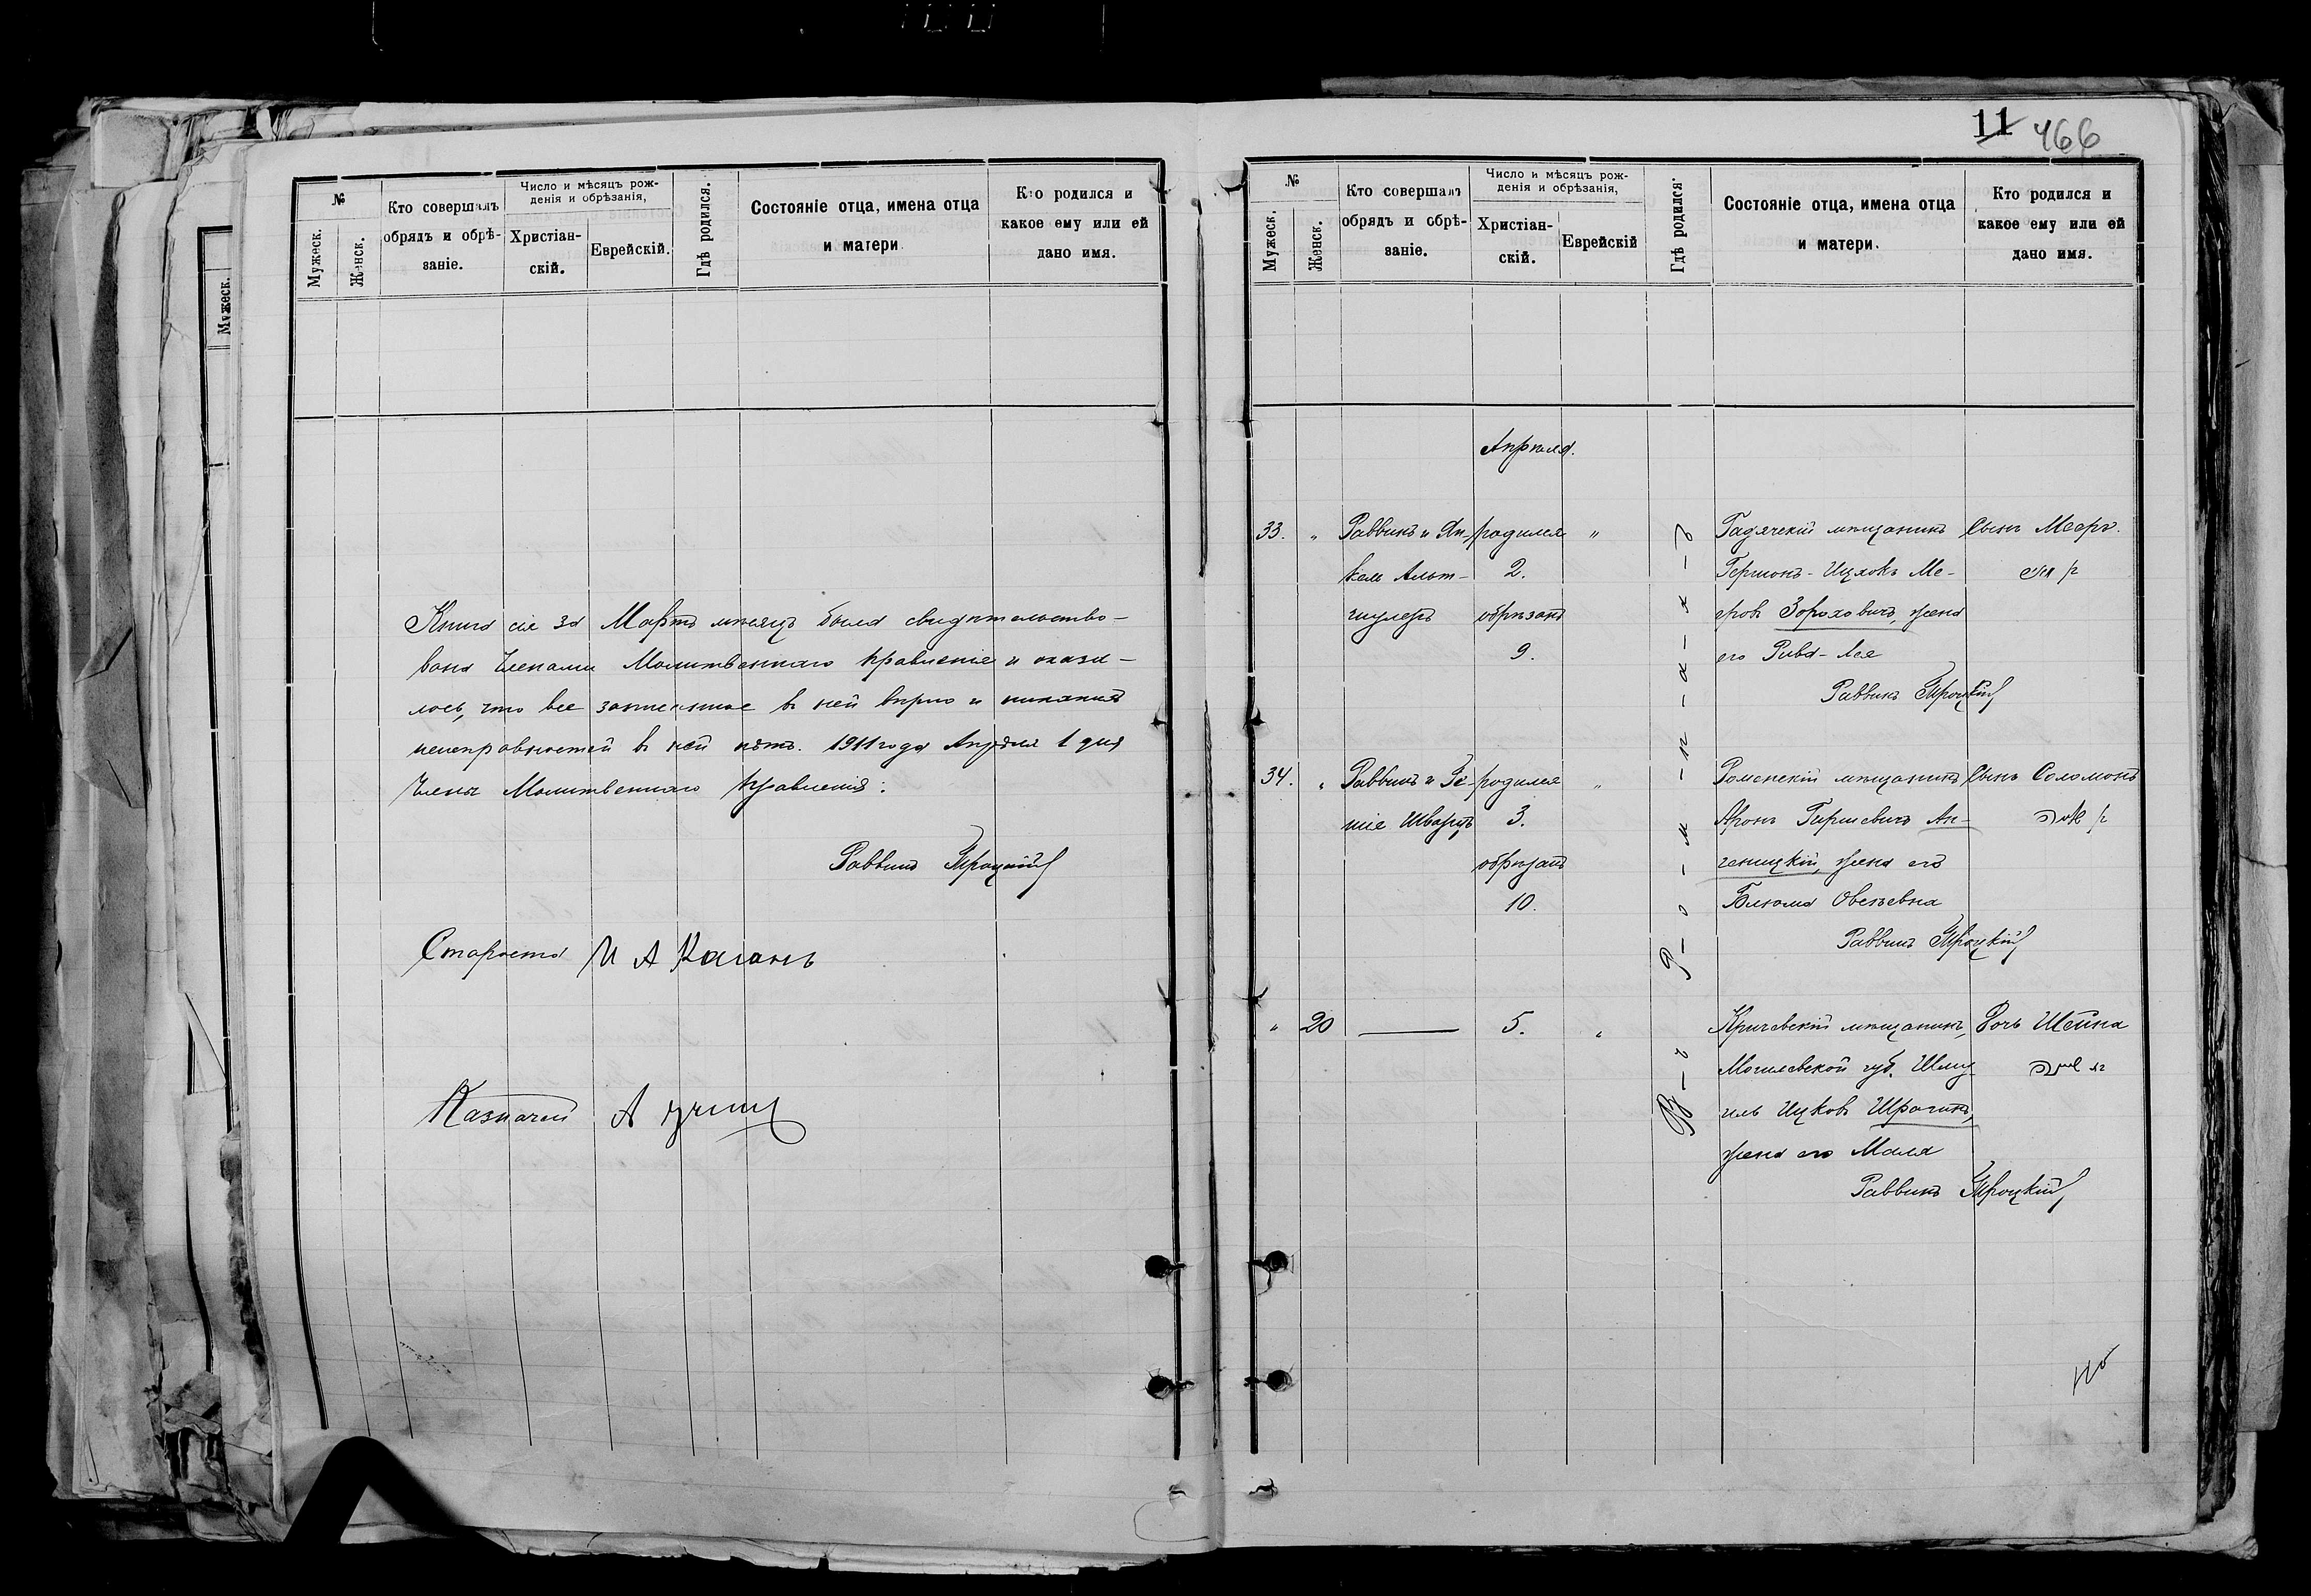 №
Мужеск.
Женск.
Кто совершалъ
обрядъ и обрѣ-
заніе.
Число и мѣсяцъ рож-
денія и обрѣзанія,
Христіан-
скій.
Еврейскій.
Гдѣ родился.
Состояніе отца, имена отца
и матери
Кто родился и
какое ему или ей
дано имя.
Мужеск.
Книга сія за Мартъ мѣсяцъ была свидѣтельство-
вана Членами Молитвеннаго Правленія и оказа-
лось, что все записанное въ ней вѣрно и никакихъ
неисправностей въ ней нѣтъ. 1911 года Апрѣля 1 дня
Члены Молитвеннаго Правленія:
Раввинъ Троцкій
Староста И А Каганъ
Казначей А
11 466
№
Мужеск.
Женск.
Кто совершалъ
обрядъ и обрѣ-
заніе.
Число и мѣсяцъ рож-
денія и обрѣзанія,
Христіан-
скій.
Еврейскій
Гдѣ родился.
Состояніе отца, имена отца
и матери.
Кто родился и
какое ему или ей
дано имя.
Апрѣля.
33. " Раввинъ и Ян- родился " Гадячскій мѣщанинъ Сынъ Мееръ.
кель Альт- 2. Гершонъ-Ицхокъ Ме-
шулеръ обрѣзанъ еровъ Зороховичъ, жена
9. его Рива-Лея
Раввинъ Троцкій
34. " Раввинъ и родился " Роменскій мѣщанинъ Сынъ Соломонъ
Шварцъ 3. Аронъ Гиршевичъ Ан-
обрѣзанъ жена его
10. Блюма Овсѣевна
Раввинъ Троцкій
" 20 — 5. " Кричевскій мѣщанинъ, Дочь Шейна
Могилевской губ. Шму-
иль Ицковъ Шрагинъ,
жена его Маля
Раввинъ Троцкій